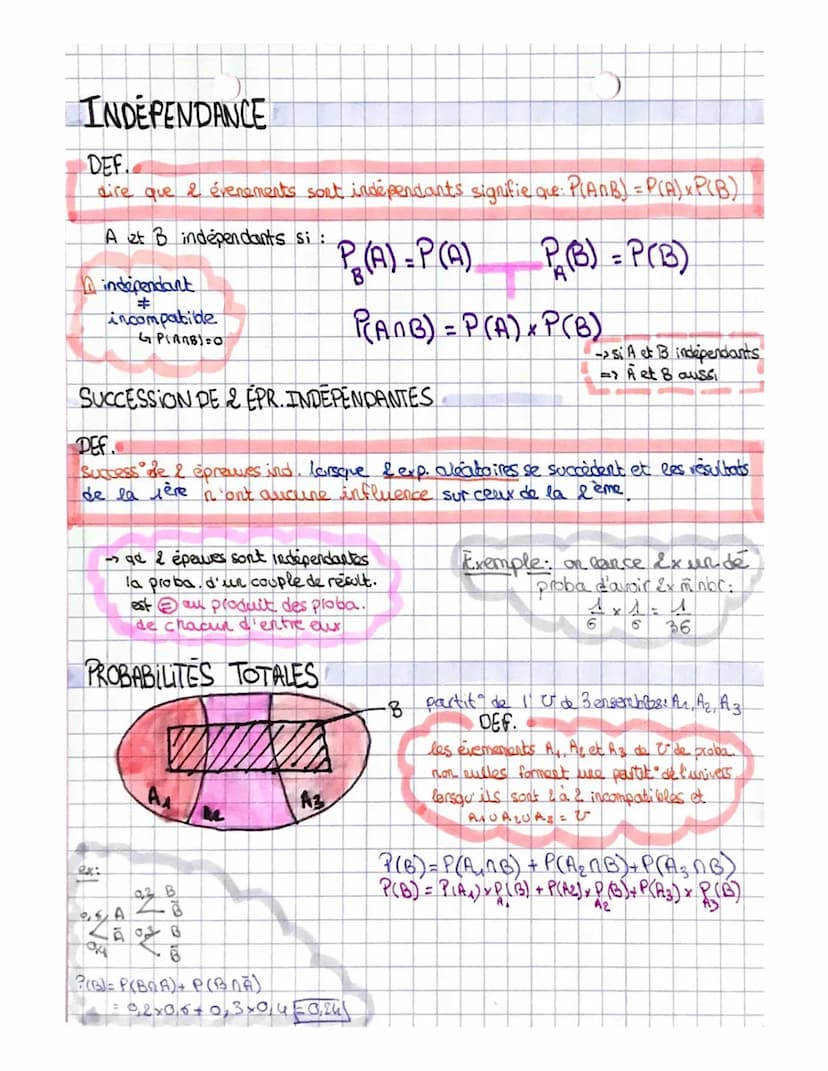 INDÉPENDANCE
DEF.
dire que 2 évenements sont indépendants signifie que: P(A∩B) = P(A) x P(B)
A et B indépendants si :
P_B(A) = P(A)
P_A(B) = P(B)
⚠ indépendant
≠
incompatible
↳ P(A∩B)=0
P(A∩B) = P(A) x P(B)
-> si A et B indépendants
=> Ā et B aussi
SUCCESSION DE 2 ÉPR. INDÉPENDANTES
DEF.
Success° de 2 épreuves ind. lorsque 2 exp. aléatoires se succèdent et les résultats
de la 1ère n'ont aucune influence sur ceux de la 2ème.
→ qd 2 épeuves sont indépendantes
la proba. d'un couple de résult.
est = au produit des proba.
de chacun d'entre eux
Exemple: on lance 2x un dé
proba d'avoir 2x m̄ nbr:
1/6 x 1/6 = 1/36
PROBABILITÉS TOTALES
B
A1
A2
A3
partit° de l' U de 3 ensembles: A1, A2, A3
DEF.
les évenements A1, A2 et A3 de U de proba
non nulles forment une partit° de l'univers
lorsqu'ils sont 2 à 2 incompatibles et
A1 ∪ A2 ∪ A3 = U
P(B) = P(A1∩B) + P(A2∩B) + P(A3∩B)
P(B) = P(A1) x P_A1(B) + P(A2) x P_A2(B) + P(A3) x P_A3(B)
ex:
0,2 B
0,6 A
B̄
Ā 0,3 B
0,4
B̄
P(B) = P(B∩A) + P(B∩Ā)
= 0,2x0,6 + 0,3x0,4 = 0,24